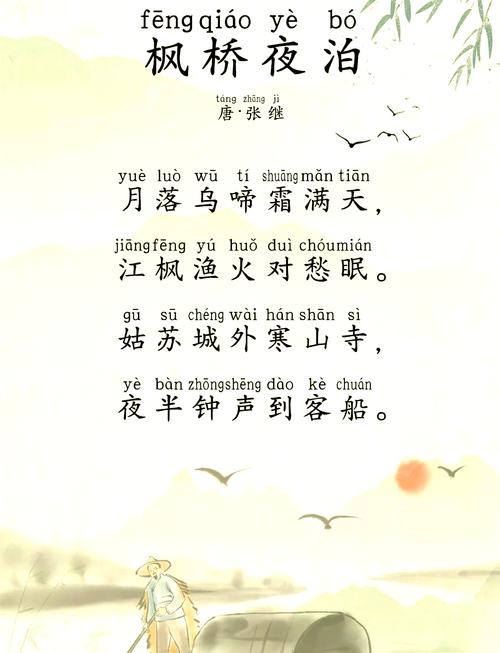 fēng qiáo yè bó
枫桥夜泊
táng zhāng jì
唐·张继
yuè luò wū tí shuāng mǎn tiān
月落乌啼霜满天，
jiāng fēng yú huǒ duì chóu mián
江枫渔火对愁眠。
gū sū chéng wài hán shān sì
姑苏城外寒山寺，
yè bàn zhōng shēng dào kè chuán
夜半钟声到客船。